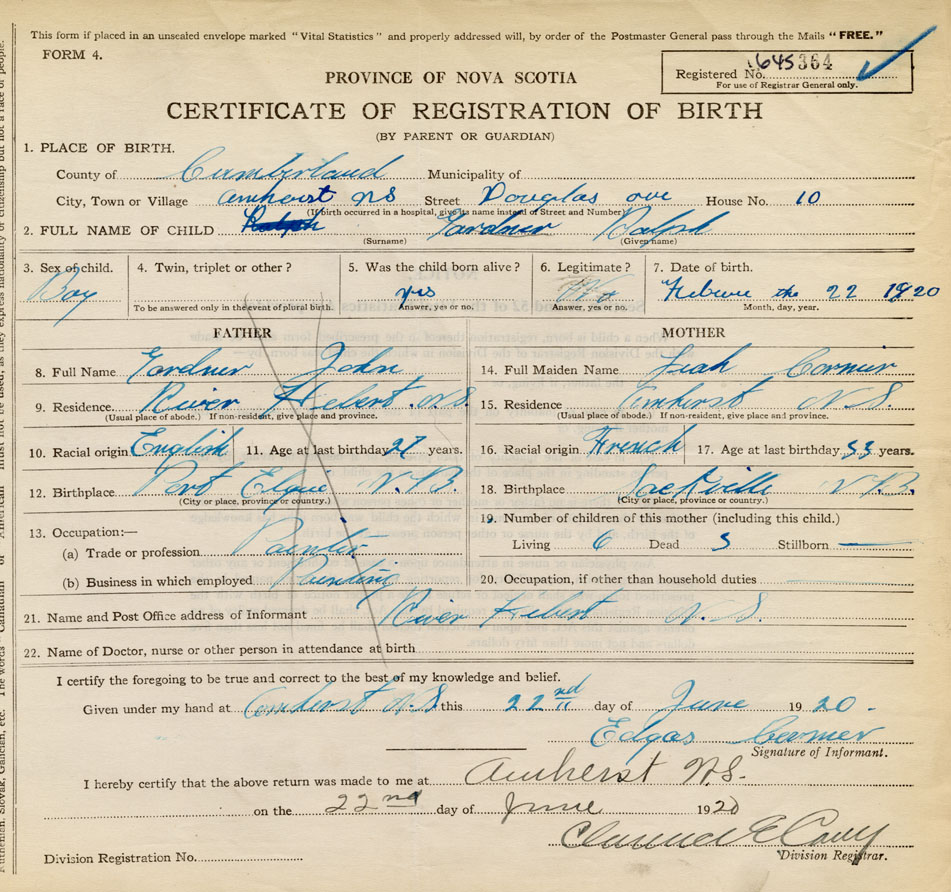 This form if placed in an unsealed envelope marked "Vital Statistics" and properly addressed will, by order of the Postmaster General pass through the Mails "FREE."
FORM 4.
Registered No. 645364
For use of Registrar General only.
PROVINCE OF NOVA SCOTIA
CERTIFICATE OF REGISTRATION OF BIRTH
(BY PARENT OR GUARDIAN)
1. PLACE OF BIRTH.
County of Cumberland Municipality of
City, Town or Village Amherst NS Street Douglas ave House No. 10
(If birth occurred in a hospital, give its name instead of Street and Number)
2. FULL NAME OF CHILD Ralph Gardner Ralph
(Surname) (Given name)
3. Sex of child. 4. Twin, triplet or other? 5. Was the child born alive? 6. Legitimate? 7. Date of birth.
Boy yes No the 22 1920
To be answered only in the event of plural birth. Answer, yes or no. Answer, yes or no. Month, day, year.
FATHER MOTHER
8. Full Name Gardner John 14. Full Maiden Name Leah Cormier
9. Residence River Hebert N.S. 15. Residence Amherst N.S.
(Usual place of abode.) If non-resident, give place and province. (Usual place of abode.) If non-resident, give place and province.
10. Racial origin English 11. Age at last birthday 27 years. 16. Racial origin French 17. Age at last birthday 33 years.
12. Birthplace Port Elgin N.B. 18. Birthplace Sackville N.B.
(City or place, province or country.) (City or place, province or country.)
13. Occupation:— 19. Number of children of this mother (including this child.)
(a) Trade or profession Painter Living 6 Dead 3 Stillborn —
(b) Business in which employed Painting 20. Occupation, if other than household duties
21. Name and Post Office address of Informant River Hebert N.S.
22. Name of Doctor, nurse or other person in attendance at birth
I certify the foregoing to be true and correct to the best of my knowledge and belief.
Given under my hand at Amherst N.S. this 22nd day of June 1920.
Edgar Cormier
Signature of Informant.
I hereby certify that the above return was made to me at Amherst N.S.
on the 22nd day of June 1920
Division Registration No. Division Registrar.